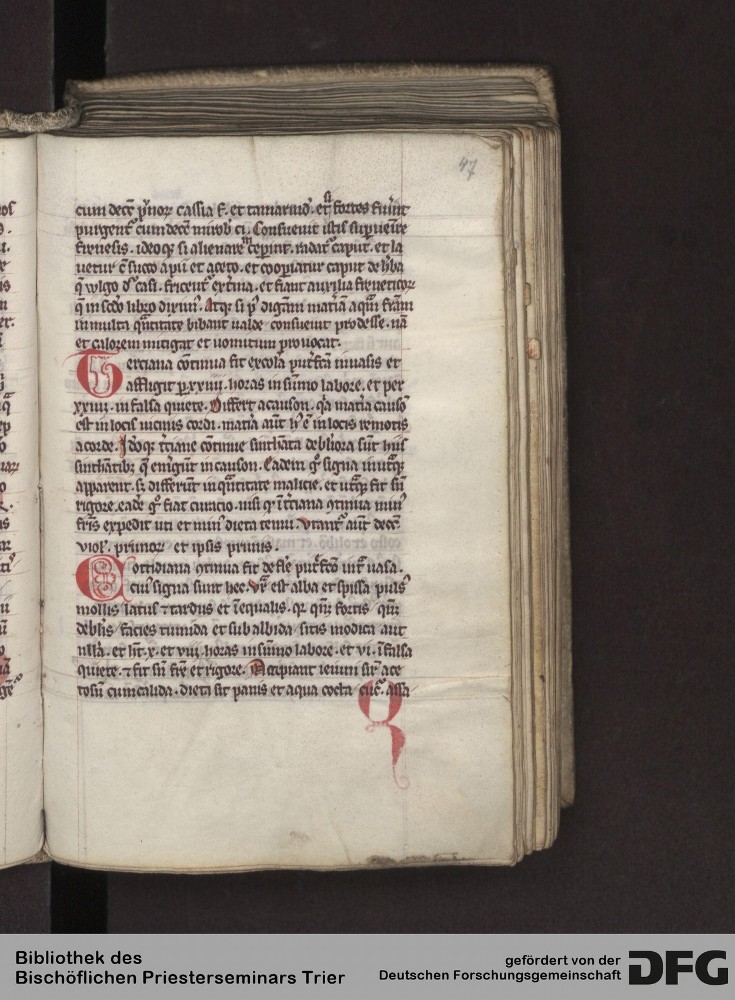 47
cum decc̄ p̄nor cassia f. et tamarind. et si fortes fu̅int
purgent᷑ cum decc̄ mirob ci. Consueuit istis superuenire
frenesis. ideoq; si alienare ceperint. radat᷑ caput. et la
uetur c̄ succo apii et aceto. et cooperiatur caput de h̓ba
q̄ wlgo d᷑ casi. fricent᷑ ext̓ma. et fiant auxilia freneticor
q̄ in sc̄do libro diximꝰ. Atq; si p᷑ digam̄ mat̓iam aquā
in multa q̄ntitate bibant ualde consueuit prodesse. nā
et calorem mitigat et uomitum prouocat.
Terciana continua fit ex col̓a put̓fc̄a in uasis et
affligit p. xxiiii. horas in sūmo labore. et per
xxiiii. in falsa quiete. Differt a causon. q̓a mat̓ia causō
est in locis uicinis cordi. mat̓ia aut̄ hꝰ ē in locis remotis
a corde. Idoq; t̓ciane continue sinthāta debiliora sūt hiis
sinthātibꝫ q̄ in causon. Eadem g᷑ signa in ut̓q;
apparent. sꝫ differūt in q̄ntitate malicie. et ut̓q; fit sn̄
rigore. eadē g᷑ fiat curacio. nisi q᷑ ī t̓ciana ꝯtinua minꝰ
expedit uti et minꝰ dieta tenui. Vtant᷑ aut̄ decc̄
viol᷑. prunor et ipsis prunis.
Cottidiana ꝯtinua fit de fle᷑ put̓fc̄o int̓ uasa.
Cuiꝰ signa sunt hec. Vr̄ est alba et spissa pulsꝰ
mollis latus ⁊ tardus et īequalis. q᷑ qn̄q; fortis qn̄q;
debilis facies tumida et subalbida sitis modica aut
nulla. et hn̄t. x. et viii. horas in sūmo labore. et vi. ī falsa
quiete. ⁊ fit sn̄ fre᷑ et rigore. Accipiant ieiuni sir᷑ ace
tosū cum calida. dieta sit panis et aqua cocta cuc᷑. assa
Bibliothek des
Bischöflichen Priesterseminars Trier
gefördert von der
Deutschen Forschungsgemeinschaft
DFG